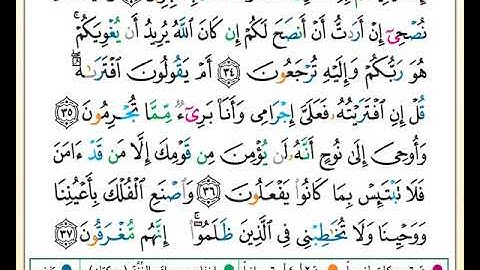 نُصْحِىٓ إِنْ أَرَدتُّ أَنْ أَنصَحَ لَكُمْ إِن كَانَ ٱللَّهُ يُرِيدُ أَن يُغْوِيَكُمْ ۚ
هُوَ رَبُّكُمْ وَإِلَيْهِ تُرْجَعُونَ ٣٤ أَمْ يَقُولُونَ ٱفْتَرَىٰهُ ۖ
قُلْ إِنِ ٱفْتَرَيْتُهُۥ فَعَلَىَّ إِجْرَامِى وَأَنَا۠ بَرِىٓءٌ مِّمَّا تُجْرِمُونَ ٣٥
وَأُوحِىَ إِلَىٰ نُوحٍ أَنَّهُۥ لَن يُؤْمِنَ مِن قَوْمِكَ إِلَّا مَن قَدْ ءَامَنَ
فَلَا تَبْتَئِسْ بِمَا كَانُوا۟ يَفْعَلُونَ ٣٦ وَٱصْنَعِ ٱلْفُلْكَ بِأَعْيُنِنَا
وَوَحْيِنَا وَلَا تُخَٰطِبْنِى فِى ٱلَّذِينَ ظَلَمُوٓا۟ ۚ إِنَّهُم مُّغْرَقُونَ ٣٧